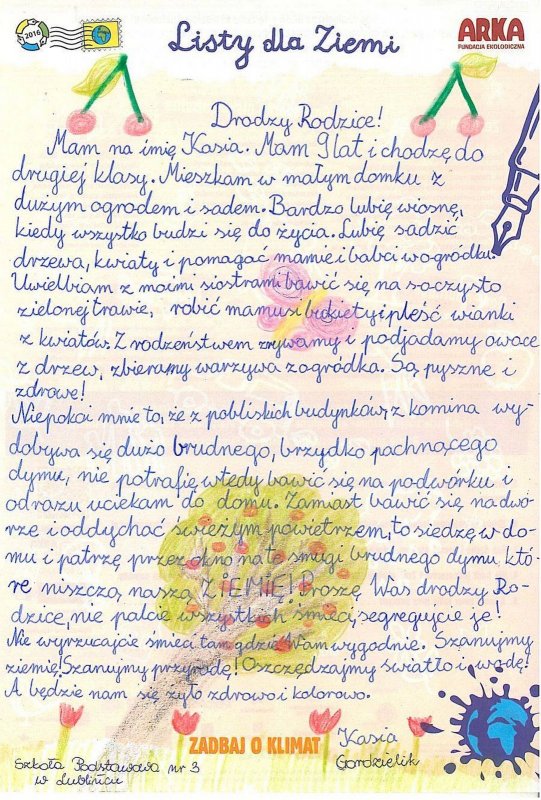 2016
Listy dla Ziemi
ARKA
FUNDACJA EKOLOGICZNA
Drodzy Rodzice!
Mam na imię Kasia. Mam 9 lat i chodzę do
drugiej klasy. Mieszkam w małym domku z
dużym ogrodem i sadem. Bardzo lubię wiosnę,
kiedy wszystko budzi się do życia. Lubię sadzić
drzewa, kwiaty i pomagać mamie i babci w ogródku.
Uwielbiam z moimi siostrami bawić się na soczysto
zielonej trawie, robić mamusi bukiety i pleść wianki
z kwiatów. Z rodzeństwem zrywamy i podjadamy owoce
z drzew, zbieramy warzywa z ogródka. Są pyszne i
zdrowe!
Niepokoi mnie to, że z pobliskich budynków, z komina wy-
dobywa się dużo brudnego, brzydko pachnącego
dymu, nie potrafię wtedy bawić się na podwórku i
odrazu uciekam do domu. Zamiast bawić się na dwo-
rze i oddychać świeżym powietrzem, to siedzę w do-
mu i patrzę przez okno na te smugi brudnego dymu, któ-
re niszczą naszą ZIEMIĘ! Proszę Was drodzy Ro-
dzice, nie palcie wszystkich śmieci, segregujcie je!
Nie wyrzucajcie śmieci tam gdzie Wam wygodnie. Szanujmy
ziemię! Szanujmy przyrodę! Oszczędzajmy światło i wodę!
A będzie nam się żyło zdrowo i kolorowo.
ZADBAJ O KLIMAT
Kasia
Gordzielik
Szkoła Podstawowa nr 3
w Lublińcu